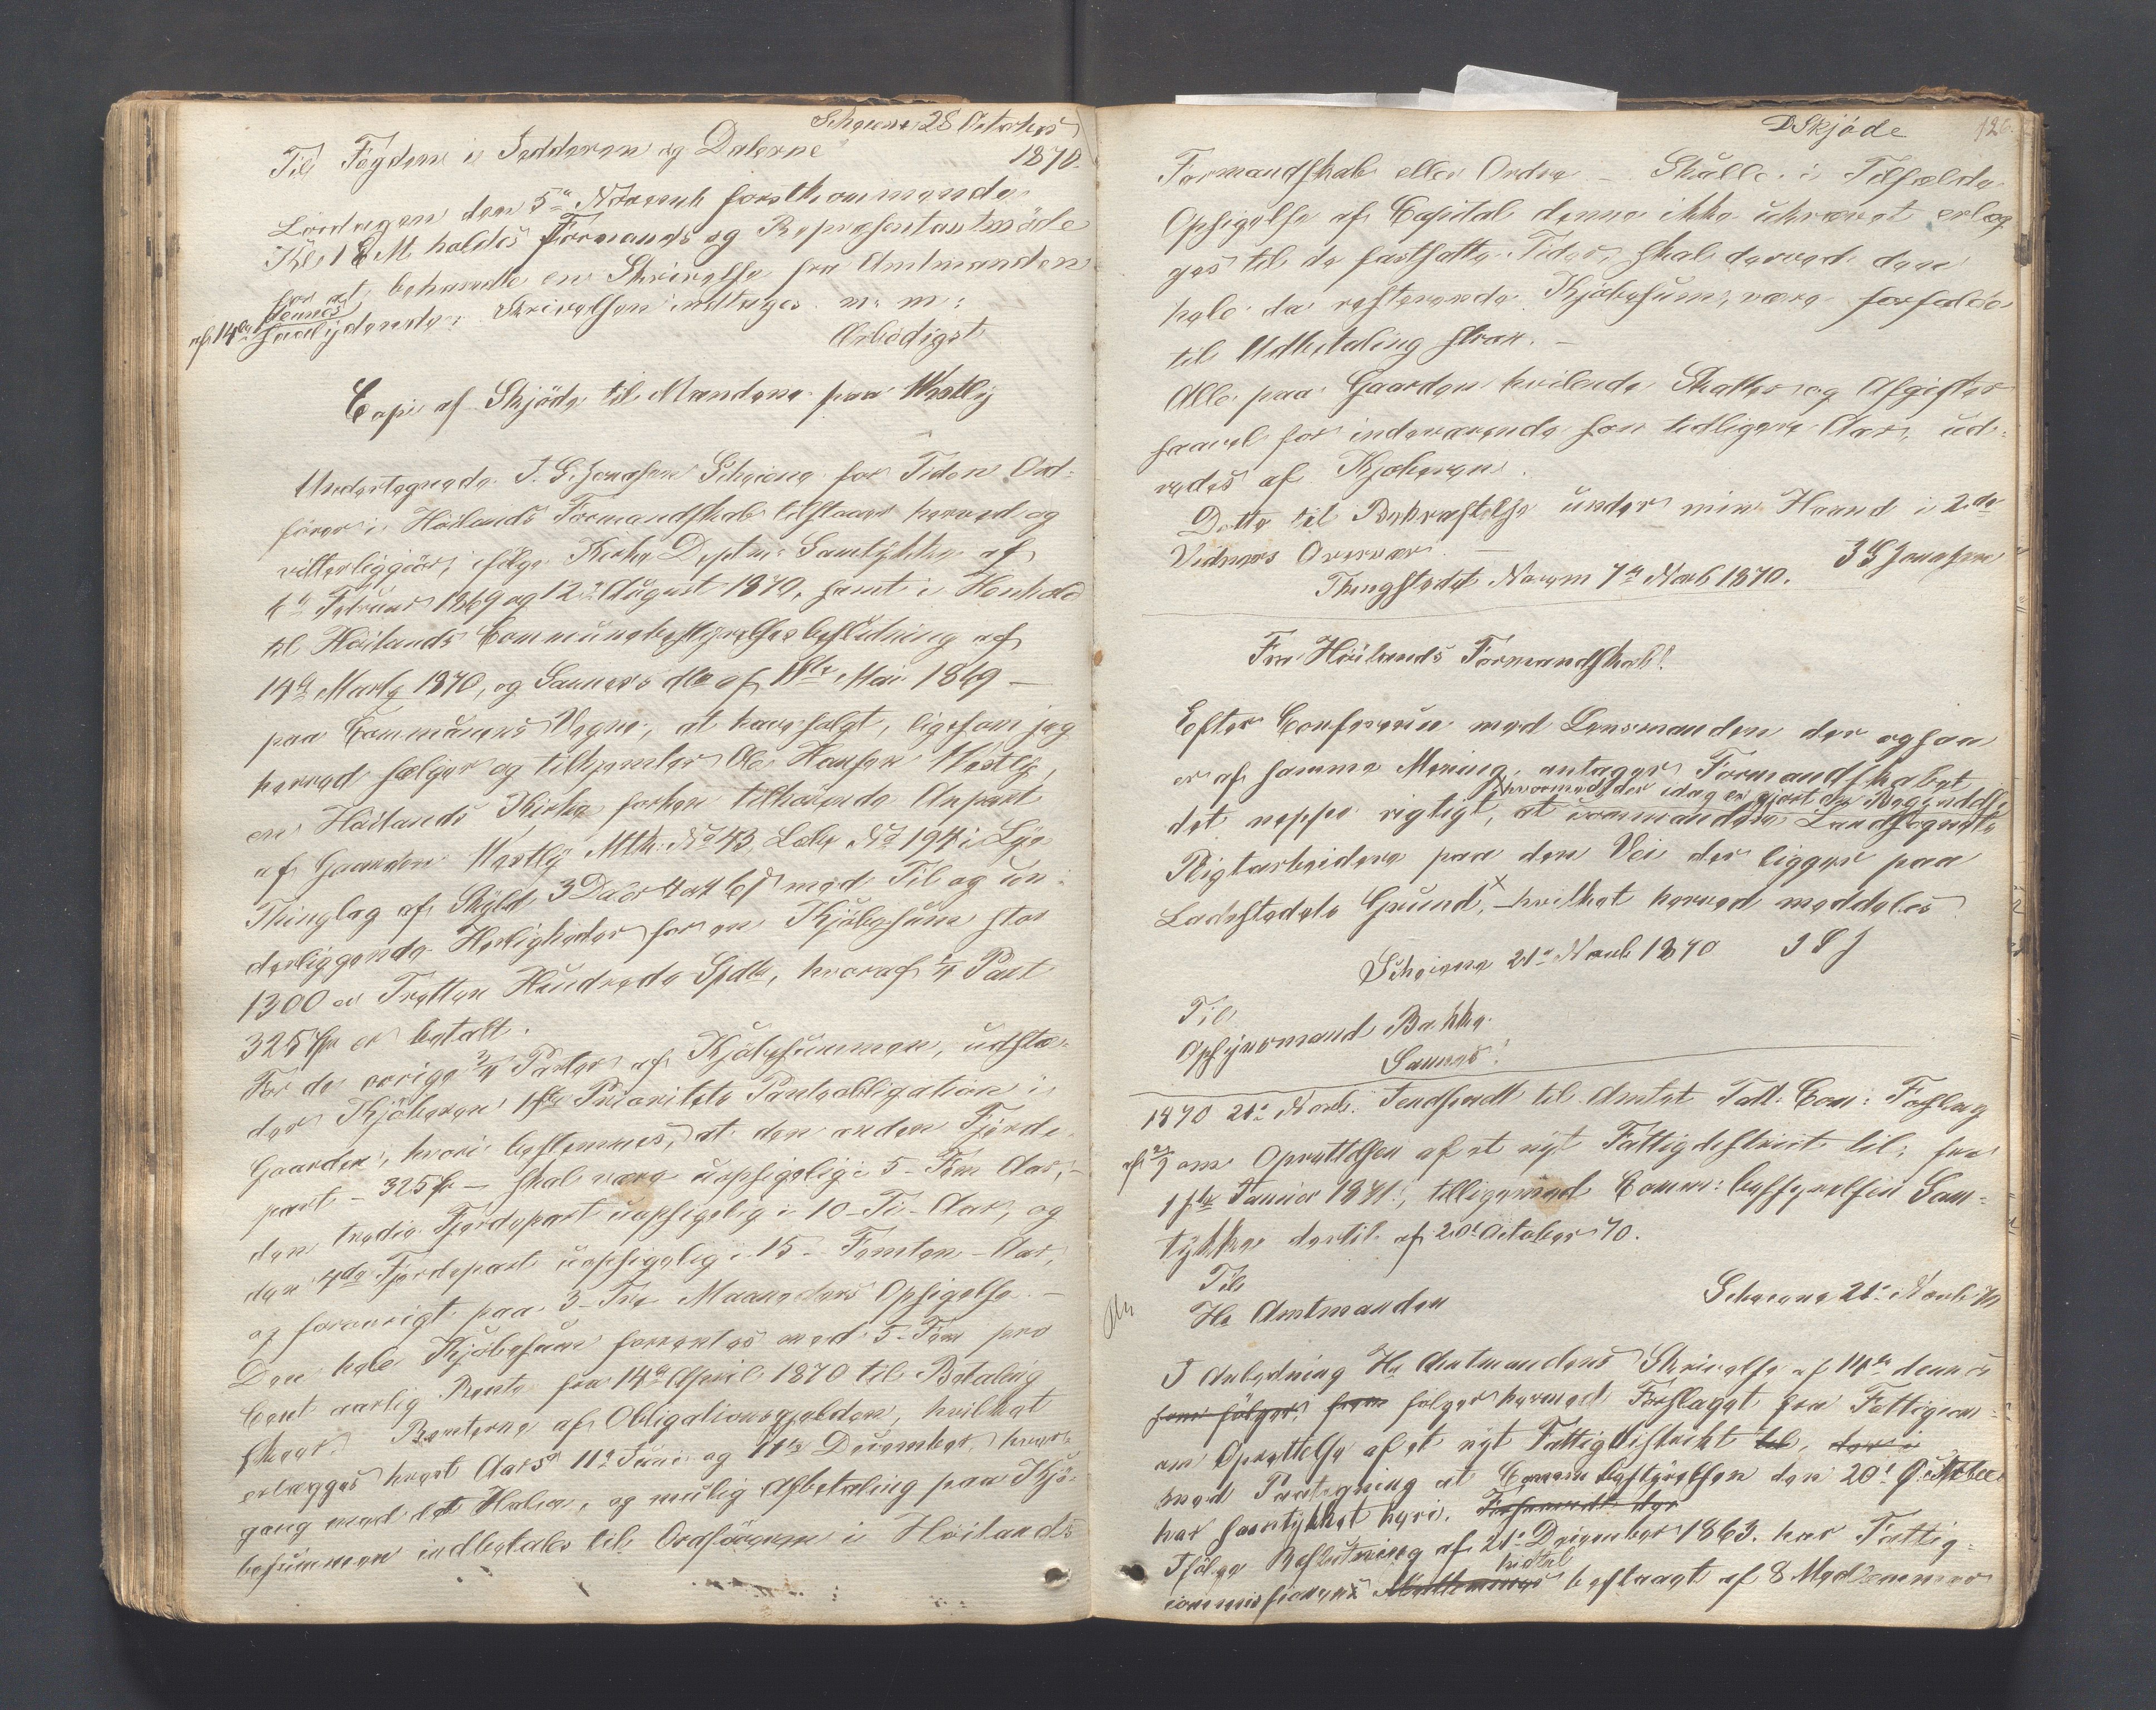 Scheiene 28 October
Til Fogden i Jedderen og Dalerne 1870.
Lördagen den 5te Novemb forstkommende
Kl. 1 E M holdes Formands og Repræsentantmöde
for at behandle en Skrivelse fra Amtmanden
af 14de dennes
saalydende: Skrivelsen indtages m: m:
Ærbödigst
Copie af Skjöde til Mandene paa Westly
Undertegnede J. G. Jonasen Scheiene for Tiden Ord-
förer i Höilands Formandskab tilstaaer herved og
vitterliggjör, ifölge Kirke Deptm: Samtykke af
Februar 1869 og 12te August 1870, samt i Henhold
til Höilands Communebestyrelses beslutning af
19de Marts 1870, og Sannæs dto af Mai 1869 —
paa Communens Vegne, at have solgt, ligesom jeg
herved sælger og tilhjemler Ole Hansen Westly,
en Höilands Kirke forhen tilhörende Anpart
af Gaarden Westly Mth. No 43, Löbe No 194 i Lye
Thinglag af Skyld 3 Daler 4 ort 6 s med Til og un-
derliggende Herligheder for en Kjöbesum stor
1300 er Tretten Hundrede Spdlr, hvoraf 1/4 Part
325 Sp er betalt.
For de övrige 3/4 Parter af Kjöbesummen, udste-
der Kjöberen 1ste Prioritets Panteobligation i
Gaarden, hvori bestemmes, at den anden Fjerde-
part – 325 Sp – skal være uopsigelig i 5 – Fem Aar, –
den tredie Fjerdepart uopsigelig i 10 – Ti – Aar, og
den 4de Fjerdepart uopsigelig i 15 – Femten – Aar,
og forövrigt paa 3 – Tre Maaneders Opsigelse. –
Den hele Kjöbesum forrentes med 5 – Fem pro
Cent aarlig Rente fra 14de April 1870 til Betaling
skeer. Renterne af Obligationsgjelden, hvilket
erlægges hvert Aars 11te Juni og 11te December, hver
gang med det Halve, og mulig Afbetaling paa Kjö-
besummen indbetales til Ordföreren i Höilands
D Skjöde 126.
Formandskab eller Ordre – Skulle i Tilfælde
Opsigelse af Capital denne ikke uhrævet erlæg-
ges til de fastsatte Tider, skal derved den
hele da resterende Kjöbesum, være forfalde
til Udbetaling strax. –
Alle paa Gaarden hvilende Skatter og Afgifter
saavel for indeværende som tidligere Aar, ud-
redes af Kjöberen.
Dette til Bekræftelse under min Haand i 2de
Vidners Overvær. –
Thingstedet Nærem 7de Novb 1870. J G Jonasen
Fra Höilands Formandskab!
Efter Conference med Lensmanden der ogsaa
er af samme Mening, antager Formandskabet
hvormed der idag er gjort en Begyndelse
det neppe rigtigt, at commandere Landsognets
Pligtarbeidere paa den Vei der ligger paa
Ladestedets Grund, × – hvilket herved meddeles
Scheiene 21de Novb 1870 J G J
Til
Opsynsmand Bakke
Sannæs!
1870 21de Novb. Tendsendt til Amtet Fatt: Com: Forslag
af 2/9 om Oprettelsen af et nyt Fattigdistrict til; fra
1ste Januar 1871, tilligemed Comm: bestyrelsen Sam-
tykke dertil af 20de October 70.
Til
Hr Amtmanden Scheiene 21de Novb 70
I Anledning Hr Amtmandens Skrivelse af 14de denne
som fölger, fölger hermed Forslaget fra Fattigcom-
om Oprettelse af et nyt Fattigdistrikt til, der i
med Paategning at Commu bestyrelsen den 20de October
har samtykket heri.
Ifölge Beslutning af 21de Decenber 1863. har Fattig-
hidtil
commissionens bestaaet af 8 Medlemmer